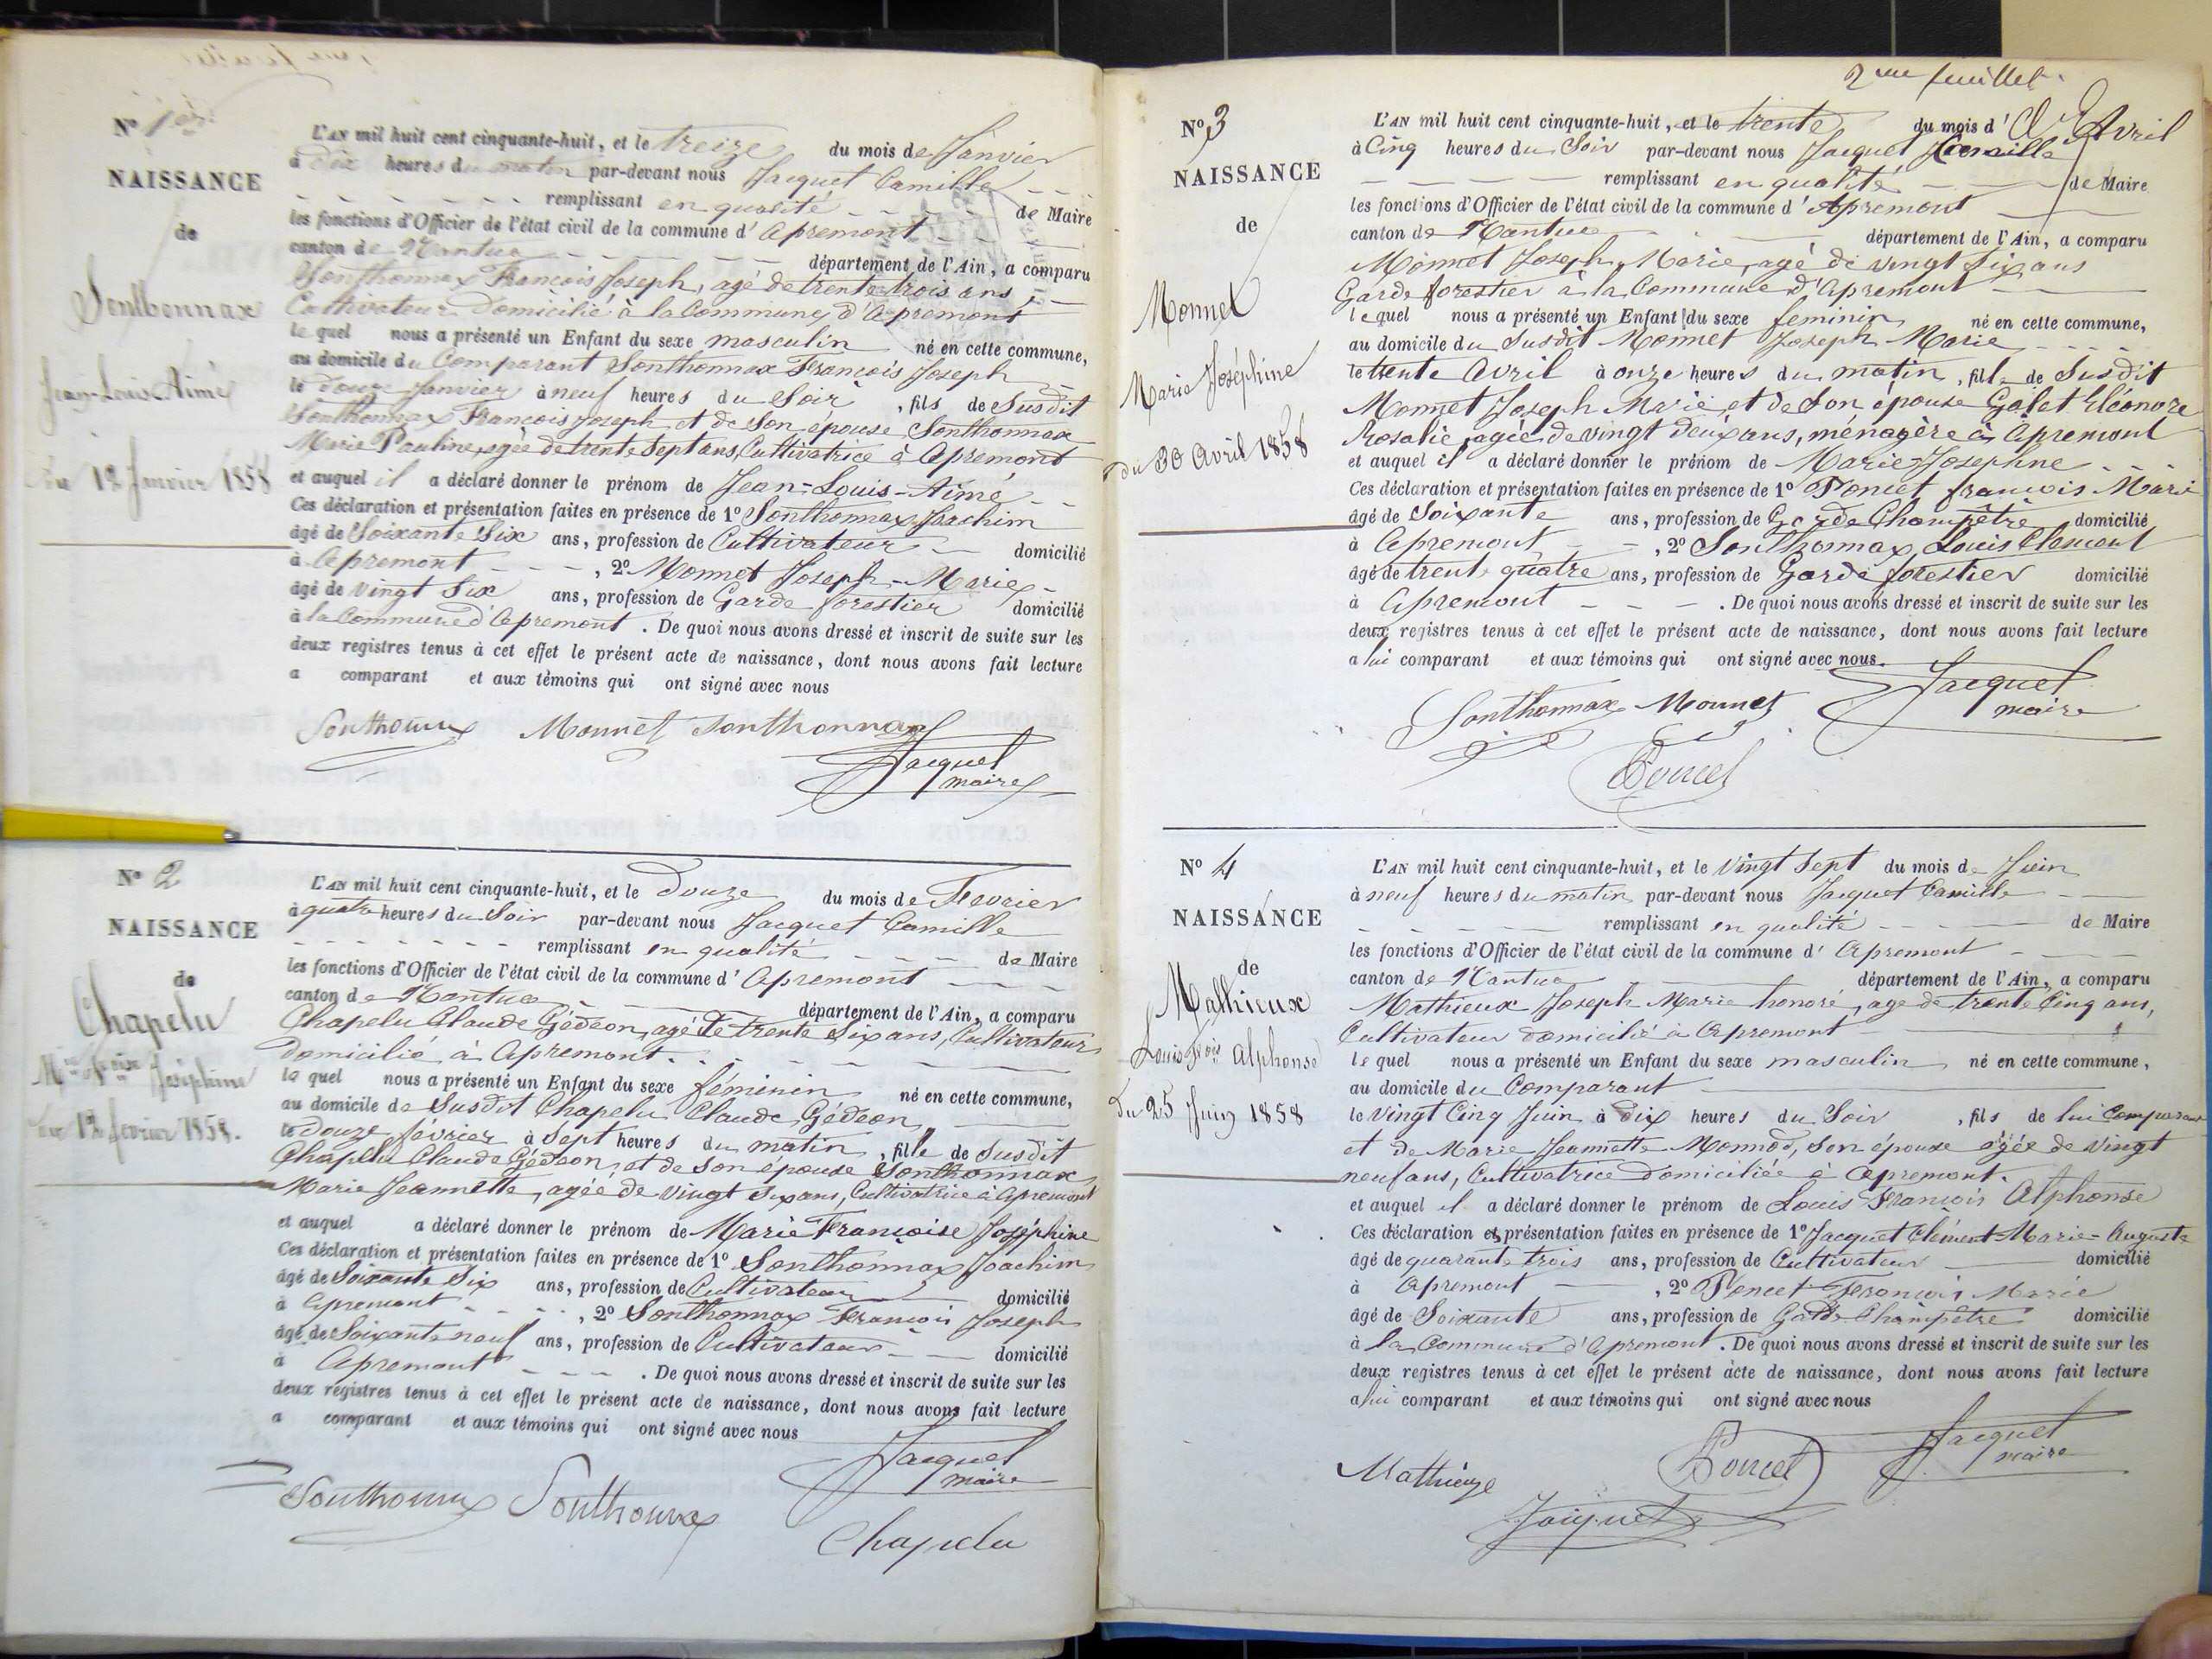 N° 1er
NAISSANCE
de
Sonthonnax
Jean-Louis Aimé
du 12 Janvier 1858
L'AN mil huit cent cinquante-huit, et le treize du mois de Janvier
à dix heures du matin par-devant nous Jacquet Camille
remplissant en qualité de Maire
les fonctions d'Officier de l'état civil de la commune d'Apremont
canton de Nantua département de l'Ain, a comparu
Sonthonnax François Joseph, agé de trente trois ans,
Cultivateur Domicilié à la Commune d'Apremont
le quel nous a présenté un Enfant du sexe masculin né en cette commune,
au domicile du Comparant Sonthonnax François Joseph
le douze Janvier à neuf heures du Soir, fils de Susdit
Sonthonnax François Joseph et de Son épouse Sonthonnax
Marie Pauline, agée de trente Sept ans, Cultivatrice à Apremont
et auquel il a déclaré donner le prénom de Jean-Louis-Aimé
Ces déclaration et présentation faites en présence de 1° Sonthonnax Joachim
âgé de Soixante Six ans, profession de Cultivateur domicilié
à Apremont, 2° Monnet Joseph-Marie
âgé de vingt Six ans, profession de Garde forestier domicilié
à la Commune d'Apremont. De quoi nous avons dressé et inscrit de suite sur les
deux registres tenus à cet effet le présent acte de naissance, dont nous avons fait lecture
a comparant et aux témoins qui ont signé avec nous
Sonthonnax Monnet Sonthonnax
Jacquet
maire
N° 2
NAISSANCE
de
Chapelu
Mie Fcoise Joséphine
du 12 février 1858.
L'AN mil huit cent cinquante-huit, et le Douze du mois de Fevrier
à quatre heures du Soir par-devant nous Jacquet Camille
remplissant en qualité de Maire
les fonctions d'Officier de l'état civil de la commune d'Apremont
canton de Nantua département de l'Ain, a comparu
Chapelu Claude Gédéon, agé de trente Six ans, Cultivateur
domicilié à Apremont.
le quel nous a présenté un Enfant du sexe féminin né en cette commune,
au domicile de Susdit Chapelu Claude Gédéon
le Douze février à Sept heures du matin, fille de Susdit
Chapelu Claude Gédéon, et de Son épouse Sonthonnax
Marie Jeannette, agée de vingt Six ans, Cultivatrice à Apremont
et auquel a déclaré donner le prénom de Marie Françoise Joséphine
Ces déclaration et présentation faites en présence de 1° Sonthonnax Joachim
âgé de Soixante Six ans, profession de Cultivateur domicilié
à Apremont, 2° Sonthonnax François Joseph
âgé de Soixante neuf ans, profession de Cultivateur domicilié
à Apremont. De quoi nous avons dressé et inscrit de suite sur les
deux registres tenus à cet effet le présent acte de naissance, dont nous avons fait lecture
a comparant et aux témoins qui ont signé avec nous
Jacquet
maire
Sonthonnax Sonthonnax
Chapelu
2me feuillet.
N° 3
NAISSANCE
de
Monnet
Marie Joséphine
du 30 Avril 1858
L'AN mil huit cent cinquante-huit, et le trente du mois d'Avril
à Cinq heures du Soir par-devant nous Jacquet Camille
remplissant en qualité de Maire
les fonctions d'Officier de l'état civil de la commune d'Apremont
canton de Nantua département de l'Ain, a comparu
Monnet Joseph Marie, agé de vingt Six ans
Garde forestier à la Commune d'Apremont
le quel nous a présenté un Enfant du sexe feminin né en cette commune,
au domicile du Susdit Monnet Joseph Marie
le trente Avril à onze heures du matin, fille de Susdit
Monnet Joseph Marie et de Son épouse Golet Eléonore
Rosalie, agée de vingt deux ans, ménagère à Apremont
et auquel il a déclaré donner le prénom de Marie-Josephine
Ces déclaration et présentation faites en présence de 1° Poncet françois Marie
âgé de Soixante ans, profession de Garde Champêtre domicilié
à Apremont, 2° Sonthonnax Louis Clément
âgé de trente quatre ans, profession de Garde forestier domicilié
à Apremont. De quoi nous avons dressé et inscrit de suite sur les
deux registres tenus à cet effet le présent acte de naissance, dont nous avons fait lecture
a lui comparant et aux témoins qui ont signé avec nous.
Sonthonnax Monnet Jacquet
maire
Poncet
N° 4
NAISSANCE
de
Mathieux
Louis Fois Alphonse
du 25 Juin 1858
L'AN mil huit cent cinquante-huit, et le vingt Sept du mois de Juin
à neuf heures du matin par-devant nous Jacquet Camille
remplissant en qualité de Maire
les fonctions d'Officier de l'état civil de la commune d'Apremont
canton de Nantua département de l'Ain, a comparu
Mathieux Joseph Marie honoré, agé de trente Cinq ans,
Cultivateur domicilié à Apremont
le quel nous a présenté un Enfant du sexe masculin né en cette commune,
au domicile du Comparant
le vingt Cinq Juin à dix heures du Soir, fils de lui Comparant
et de Marie Jeannette Monnod, son épouse agée de vingt
neuf ans, Cultivatrice domiciliée à Apremont.
et auquel il a déclaré donner le prénom de Louis François Alphonse
Ces déclaration et présentation faites en présence de 1° Jacquet Clément Marie-Auguste
âgé de quarante trois ans, profession de Cultivateur domicilié
à Apremont, 2° Poncet François Marie
âgé de Soixante ans, profession de Garde Champêtre domicilié
à la Commune d'Apremont. De quoi nous avons dressé et inscrit de suite sur les
deux registres tenus à cet effet le présent acte de naissance, dont nous avons fait lecture
a lui comparant et aux témoins qui ont signé avec nous
Mathieux Poncet Jacquet
maire
Jacquet